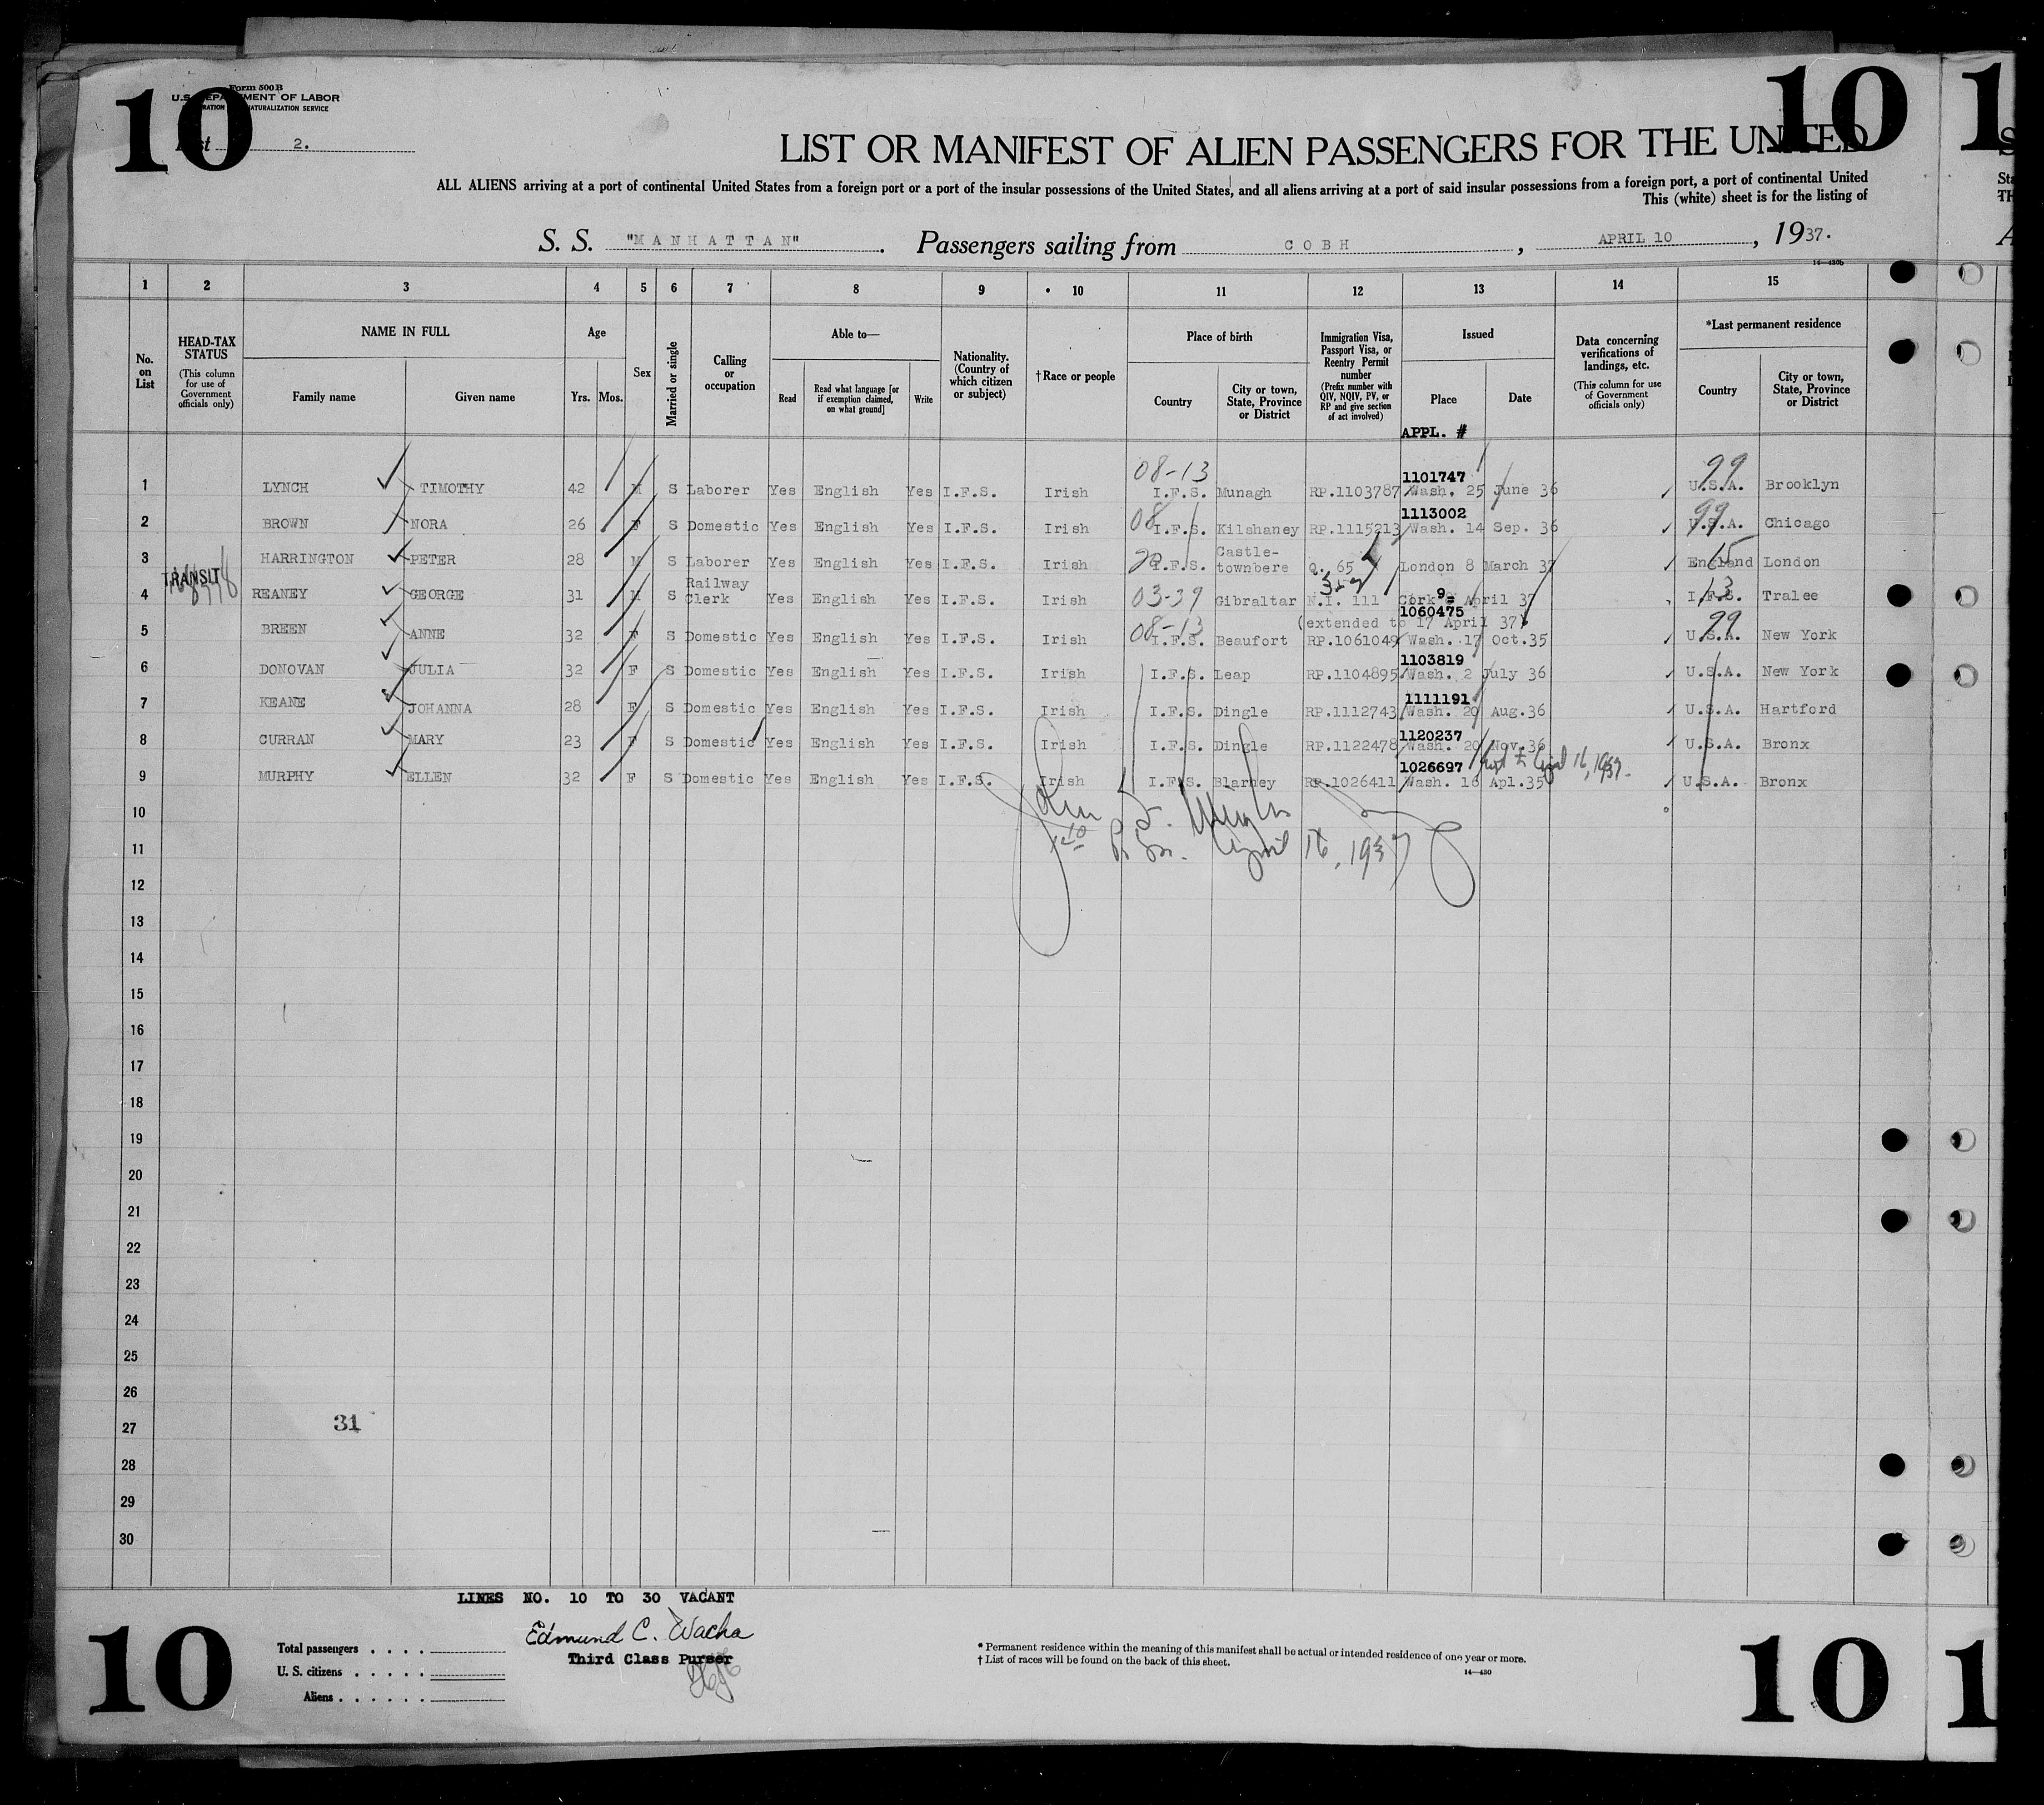 10
Form 500 B
U.S. DEPARTMENT OF LABOR
NATURALIZATION SERVICE
List 2.
10
1
LIST OR MANIFEST OF ALIEN PASSENGERS FOR THE UNITED
ALL ALIENS arriving at a port of continental United States from a foreign port or a port of the insular possessions of the United States, and all aliens arriving at a port of said insular possessions from a foreign port, a port of continental United
This (white) sheet is for the listing of
S. S. "MANHATTAN". Passengers sailing from COBH, APRIL 10, 1937.
14—430b
1 2 3 4 5 6 7 8 9 10 11 12 13 14 15
No. on List
HEAD-TAX STATUS (This column for use of Government officials only)
NAME IN FULL
Family name Given name
Age
Yrs. Mos.
Sex
Married or single
Calling or occupation
Able to—
Read Read what language [or if exemption claimed, on what ground] Write
Nationality. (Country of which citizen or subject)
†Race or people
Place of birth
Country City or town, State, Province or District
Immigration Visa, Passport Visa, or Reentry Permit number (Prefix number with QIV, NQIV, PV, or RP and give section of act involved)
Issued
Place Date
APPL. #
Data concerning verifications of landings, etc. (This column for use of Government officials only)
*Last permanent residence
Country City or town, State, Province or District
08-13 1101747 99
1 LYNCH TIMOTHY 42 M S Laborer Yes English Yes I.F.S. Irish I.F.S. Munagh RP.1103787 Wash. 25 June 36 U.S.A. Brooklyn
08 1113002 99
2 BROWN NORA 26 F S Domestic Yes English Yes I.F.S. Irish I.F.S. Kilshaney RP.1115213 Wash. 14 Sep. 36 U.S.A. Chicago
3 HARRINGTON PETER 28 M S Laborer Yes English Yes I.F.S. Irish I.F.S. Castle-townbere Q. 65 London 8 March 37 England London
15
TRANSIT
4 REANEY GEORGE 31 M S Railway Clerk Yes English Yes I.F.S. Irish 03-39 Gibraltar N.I. 111 Cork 9 April 37 I.F.S. Tralee
13
1060475
(extended to 17 April 37)
08-13 99
5 BREEN ANNE 32 F S Domestic Yes English Yes I.F.S. Irish I.F.S. Beaufort RP.1061049 Wash. 17 Oct.35 U.S.A. New York
1103819
6 DONOVAN JULIA 32 F S Domestic Yes English Yes I.F.S. Irish I.F.S. Leap RP.1104895 Wash. 2 July 36 U.S.A. New York
1111191
7 KEANE JOHANNA 28 F S Domestic Yes English Yes I.F.S. Irish I.F.S. Dingle RP.1112743 Wash. 20 Aug.36 U.S.A. Hartford
1120237
8 CURRAN MARY 23 F S Domestic Yes English Yes I.F.S. Irish I.F.S. Dingle RP.1122478 Wash. 20 Nov.36 U.S.A. Bronx
1026697 April 16, 1937.
9 MURPHY ELLEN 32 F S Domestic Yes English Yes I.F.S. Irish I.F.S. Blarney RP.1026411 Wash. 16 Apl.35 U.S.A. Bronx
10
April 16, 1937
11
12
13
14
15
16
17
18
19
20
21
22
23
24
25
26
27
31
28
29
30
LINES NO. 10 TO 30 VACANT
Edmund C. Wacha
Third Class Purser
10
Total passengers
U. S. citizens
Aliens
* Permanent residence within the meaning of this manifest shall be actual or intended residence of one year or more.
† List of races will be found on the back of this sheet.
14—430
10
1